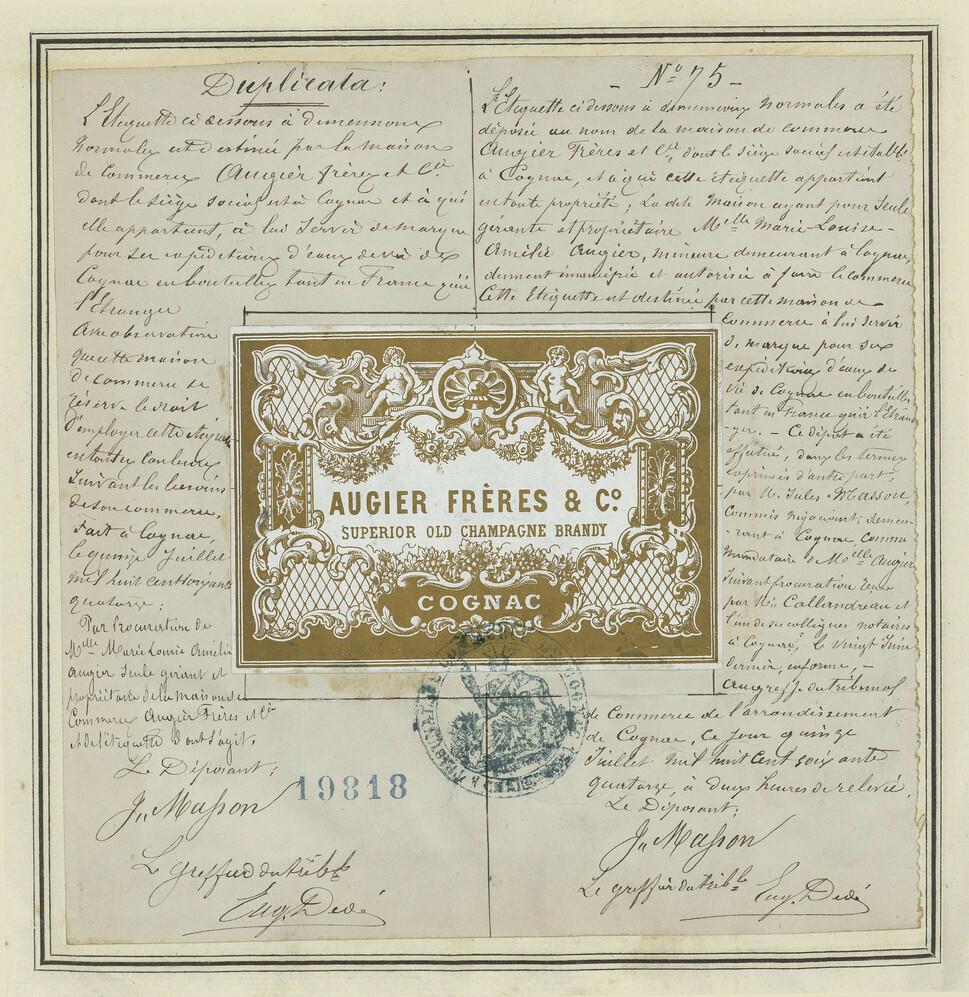 Duplicata:
L'Etiquette ci dessous à dimensions
normales est destinée par la maison
de Commerce Augier frères et Cie
dont le siège social est à Cognac et à qui
elle appartient, à lui servir de marque
pour ses expéditions d'eaux de vie de
Cognac en bouteilles tant en France qu'à
l'Etranger
Avec observation
que cette maison
de commerce se
réserve le droit
d'employer cette étiquette
en toutes couleurs
suivant les besoins
de son commerce,
Fait à Cognac,
le quinze Juillet
mil huit cent soixante
quatorze:
Par Procuration de
Melle Marie Louise Amélie
Augier Seule gérant et
propriétaire de la maison de
Commerce Augier Frères et Cie
et de l'étiquette dont s'agit,
Le Déposant;
J. Masson
Le greffier du tribal
Eug. Dedé
- No 75 -
L'Etiquette ci dessous à dimensions normales a été
déposée au nom de la maison de commerce
Augier Frères et Cie, dont le siège social est établi
à Cognac, et à qui cette étiquette appartient
en toute propriété; La dite Maison ayant pour Seule
gérante et propriétaire Melle Marie-Louise-
Amélie Augier, mineure demeurant à Cognac,
dument émancipée et autorisée à faire le commerce
Cette Etiquette est destinée par cette maison de
Commerce à lui servir
de marque pour ses
expéditions d'eaux de
vie de Cognac en bouteilles
tant en France qu'à l'Etran-
-ger. - Ce dépôt a été
effectué, dans les termes
exprimés d'autre part,
par M. Jules Masson,
Commis négociant, demeu-
-rant à Cognac comme
Mandataire de Melle Augier
suivant procuration reçue
par Me Callandreau et
l'un de ses collègues notaires
à Cognac, le vingt Juin
dernier, en forme, -
au greffe du tribunal
de Commerce de l'arrondissement
de Cognac, ce jour quinze
Juillet mil huit cent soixante
quatorze, à deux heures de relevée,
Le Déposant;
J. Masson
Le greffier du tribal
Eug. Dedé
AUGIER FRÈRES & Co.
SUPERIOR OLD CHAMPAGNE BRANDY
COGNAC
19818